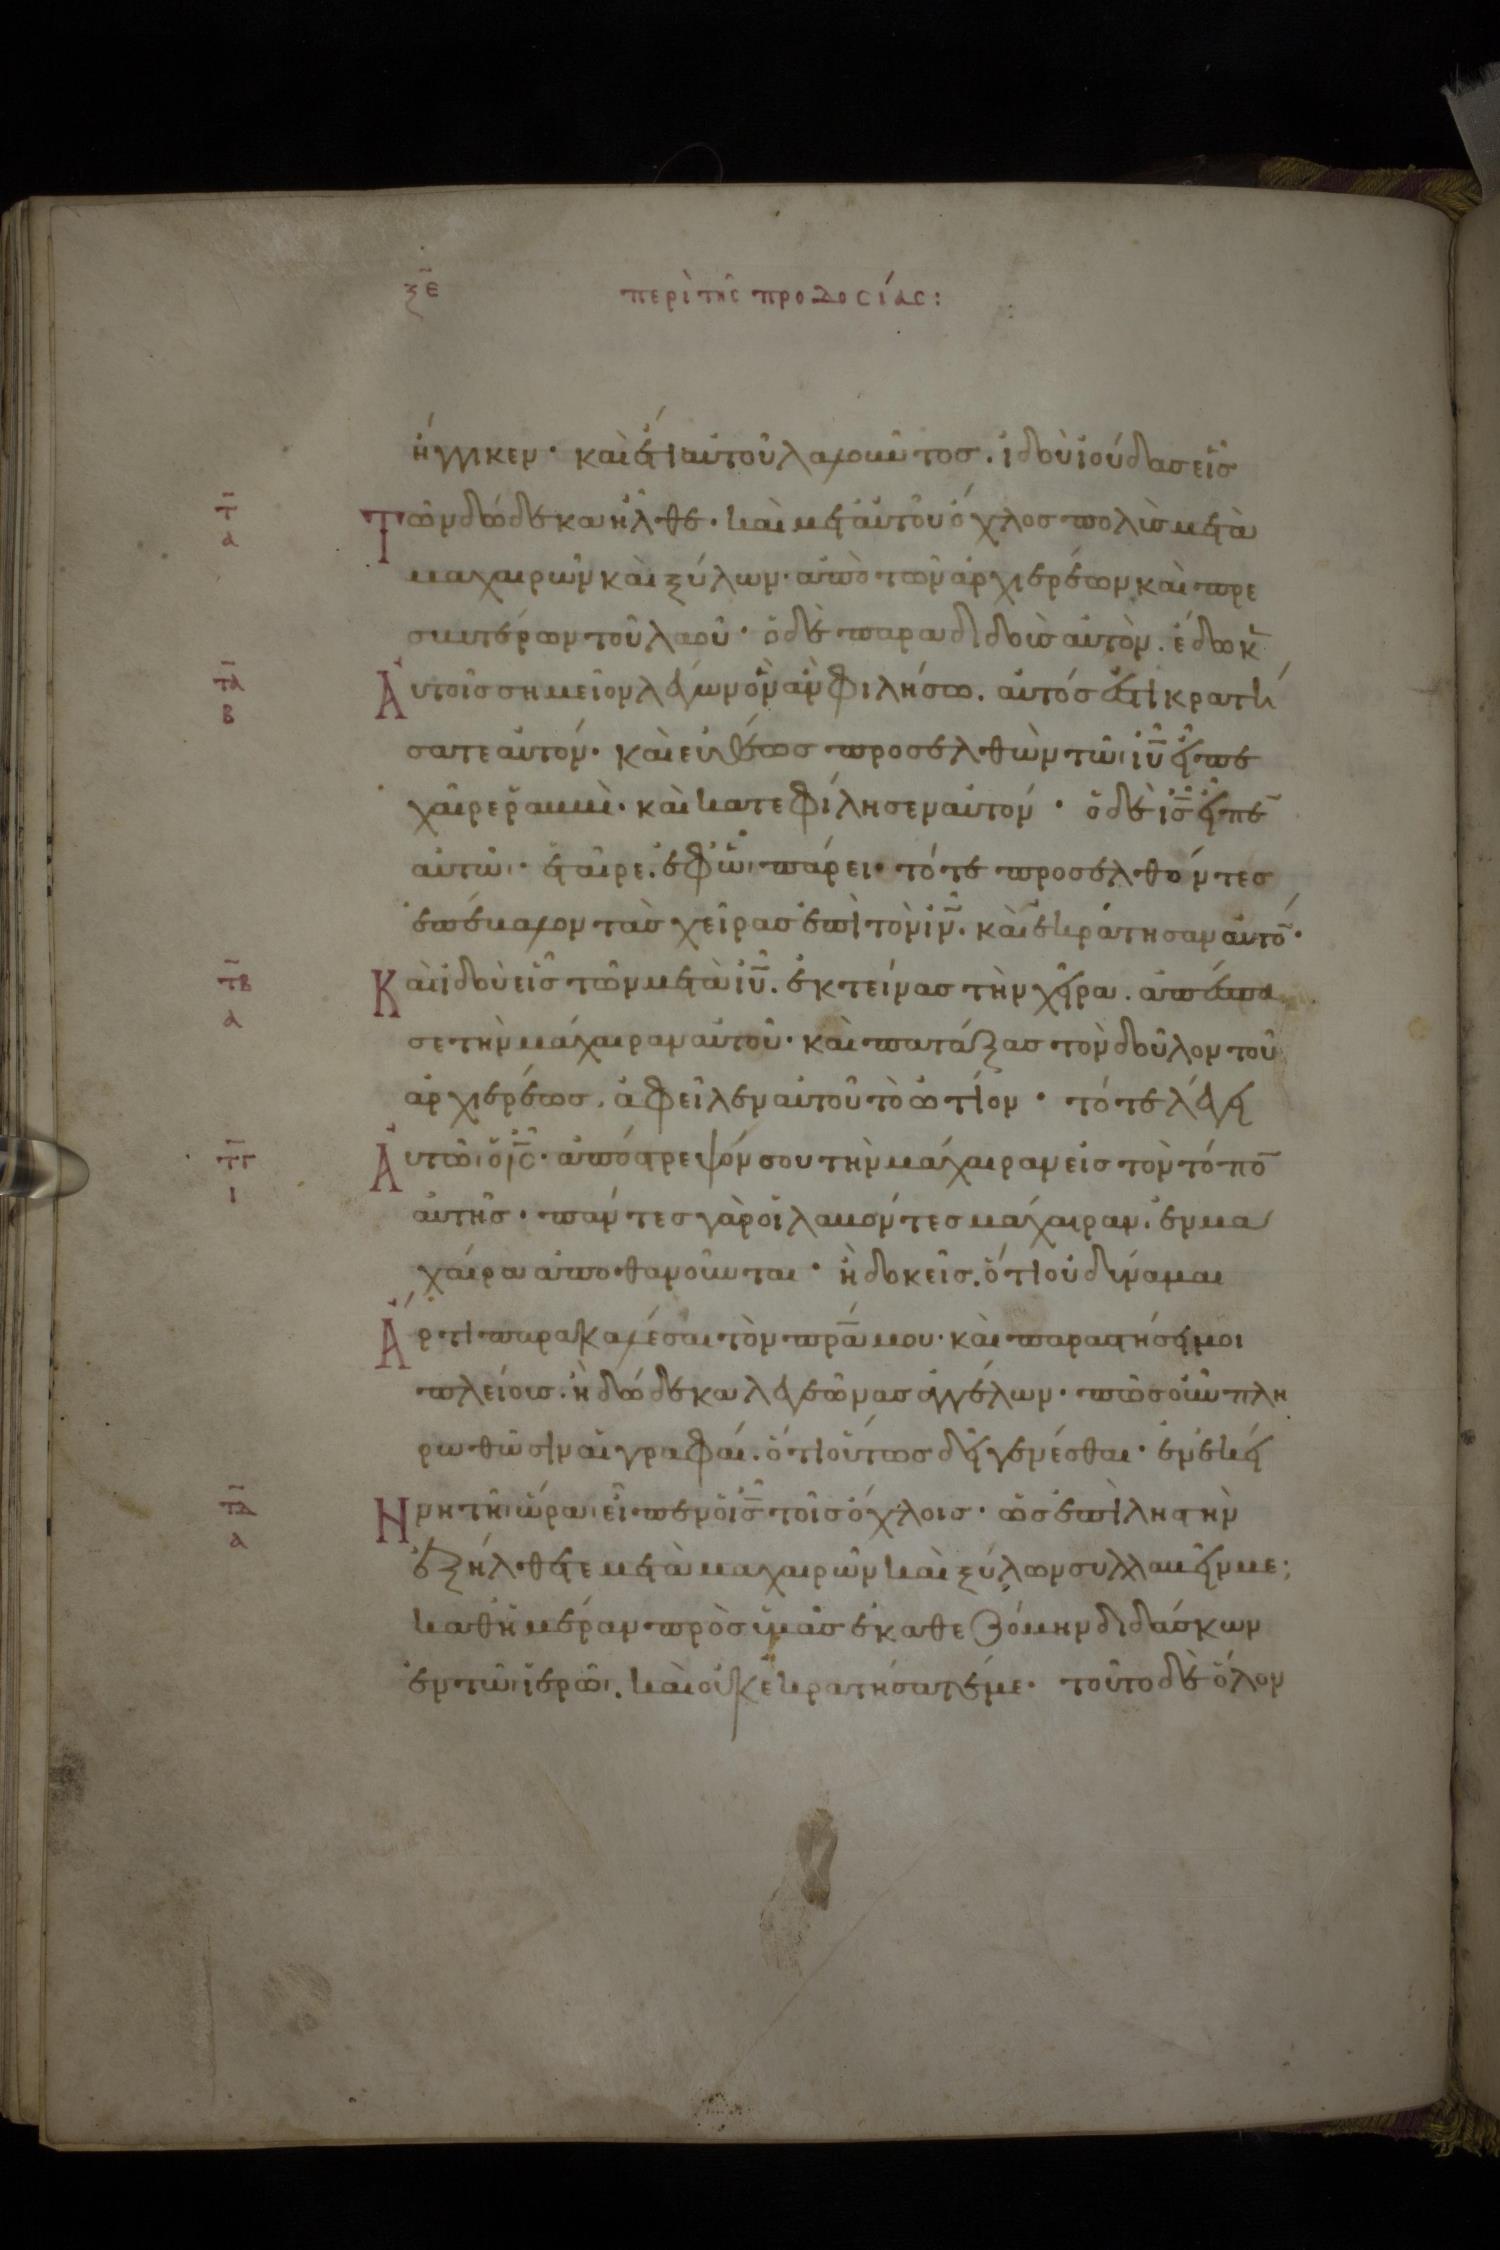 ξε περὶ τῆς προδοσίας:
ἤγγικεν· καὶ ἔτι αὐτοῦ λαλοῦντος. ἰδοὺ ἰούδας εἷς
τ̅ α Τῶν δώδεκα ἦλθε· καὶ μετ αὐτοῦ ὄχλος πολὺς μετὰ
μαχαιρῶν καὶ ξύλων· ἀπὸ τῶν ἀρχιερέων καὶ πρε
σβυτέρων τοῦ λαοῦ· ὁ δὲ παραδιδοὺς αὐτὸν. ἔδωκ̅
τ̅α̅ β Ἀυτοῖς σημεῖον λέγων ὃν ἂν φιλήσω. αὐτός ἐστι κρατή
σατε αὐτόν· καὶ εὐθέως προσελθὼν τῶι ἰῦ εἶπε
χαῖρε ῥαββὶ· καὶ κατεφίλησεν αὐτόν· ὁ δὲ ἰς̅ εἶπε̅
αὐτῶι· ἑταῖρε. ἐφ ὧι πάρει· τότε προσελθόντες
ἐπέβαλον τὰς χεῖρας ἐπὶ τὸν ἰν̅. καὶ ἐκράτησαν αὐτο̅·
τ̅β̅ α Καὶ ἰδοὺ εἷς τῶν μετὰ ἰυ̅. ἐκτείνας τὴν χεῖρα. ἀπέσπα
σε τὴν μάχαιραν αὐτοῦ· καὶ πατάξας τὸν δοῦλον τοῦ
ἀρχιερέως. ἀφεῖλεν αὐτοῦ τὸ ὠτίον· τότε λέγει
τ̅γ̅ ι Ἀυτῶι ὁ ἰς̅· ἀπόστρεψόν σου τὴν μάχαιραν εἰς τὸν τόπο̅
αὐτῆς· πάντες γὰρ οἱ λαβόντες μάχαιραν. ἐν μα
χαίρα ἀποθανοῦνται· ἢ δοκεῖς. ὅτι οὐ δύναμαι
Ἄρτι παρακαλέσαι τὸν πρ̅α μου· καὶ παραστήσει μοι
πλείους. ἢ δώδεκα λεγεῶνας ἀγγέλων· πῶς οὖν πλη
ρωθῶσιν αἱ γραφαί. ὅτι οὕτως δεῖ γενέσθαι· ἐν ἐκεί
τ̅δ̅ α Νη τῆι ὥραι εἶπεν ὁ ἰς̅ τοῖς ὄχλοις· ὡς ἐπὶ ληστὴν
ἐξήλθετε μετὰ μαχαιρῶν καὶ ξύλων συλλαβεῖν με;
καθ ἡμέραν πρὸς ὑμᾶς ἐκαθεζόμην διδάσκων
ἐν τῶι ἱερῶι. καὶ οὐκ ἐκρατήσατέ με· τοῦτο δὲ ὅλον